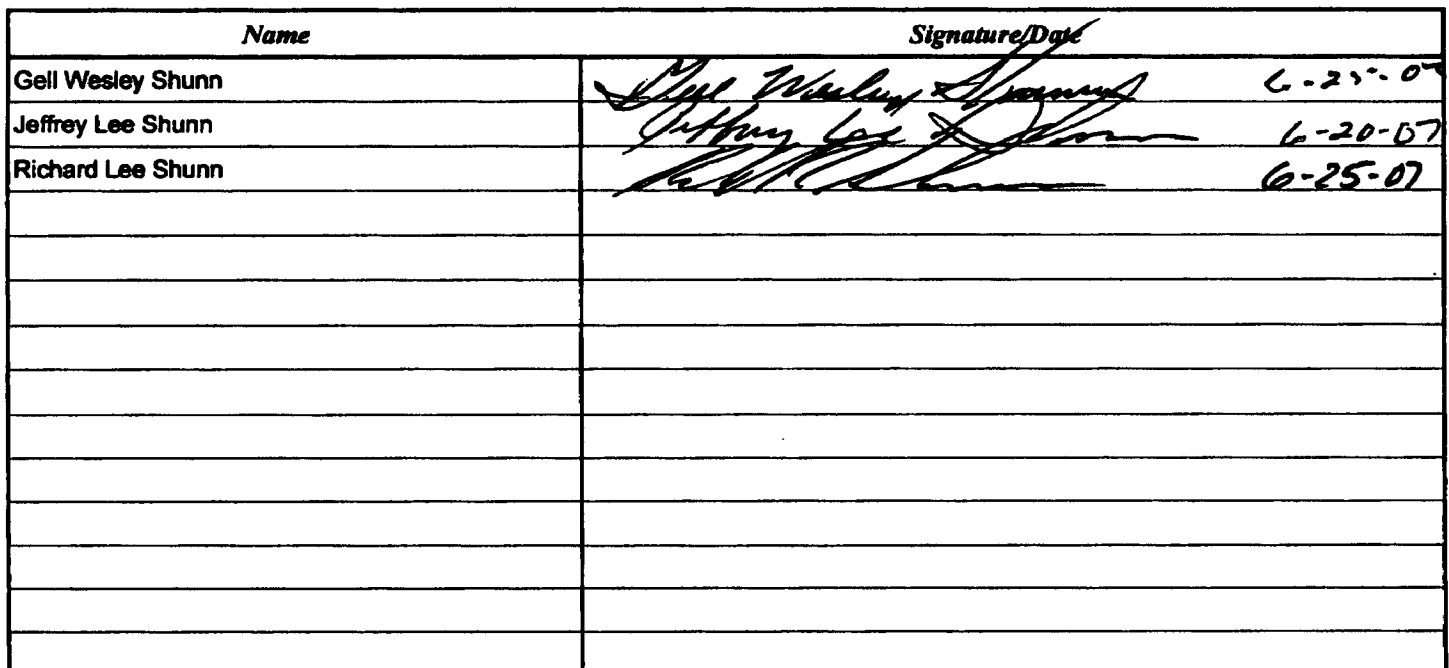 Name Signature/Date
Gell Wesley Shunn Gell Wesley Shunn 6-25-07
Jeffrey Lee Shunn Jeffrey Lee Shunn 6-20-07
Richard Lee Shunn 6-25-07